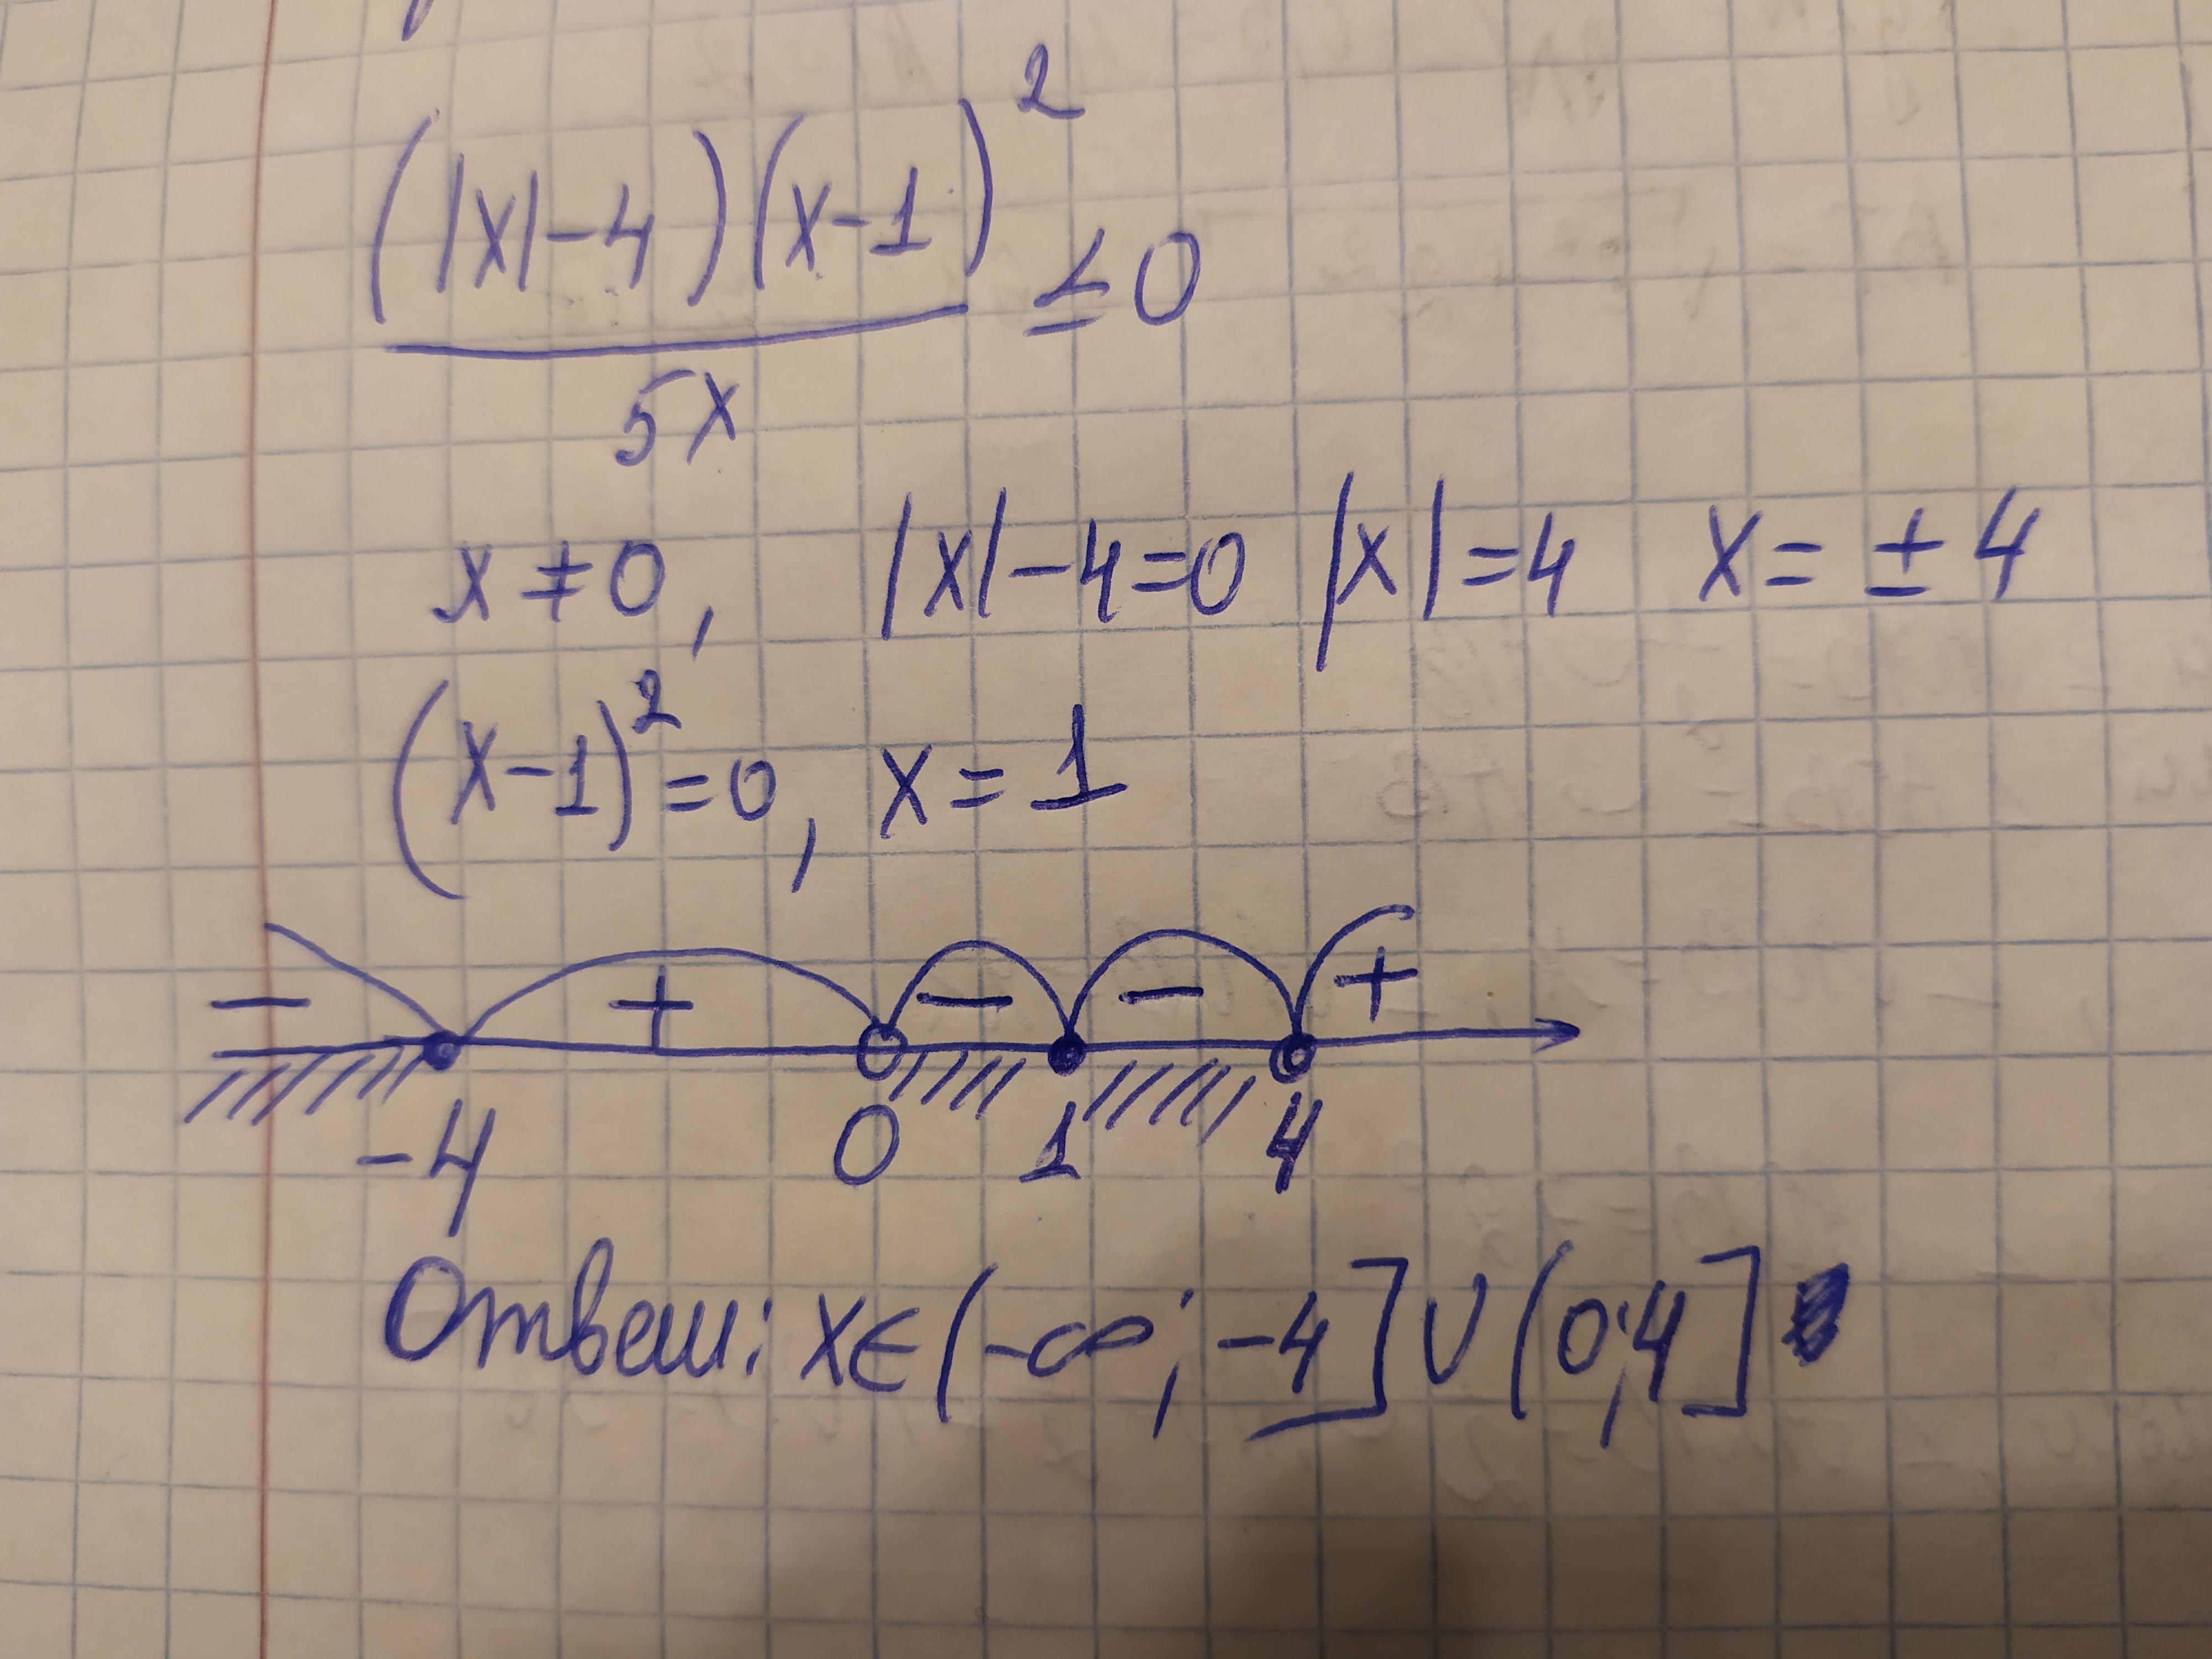 (|x|-4)(x-1)² ≤ 0
5x
x ≠ 0, |x|-4=0 |x|=4 x= ± 4
(x-1)²=0, x=1
- + - - +
-4 0 1 4
Ответ: x∈(-∞; -4]∪(0;4]